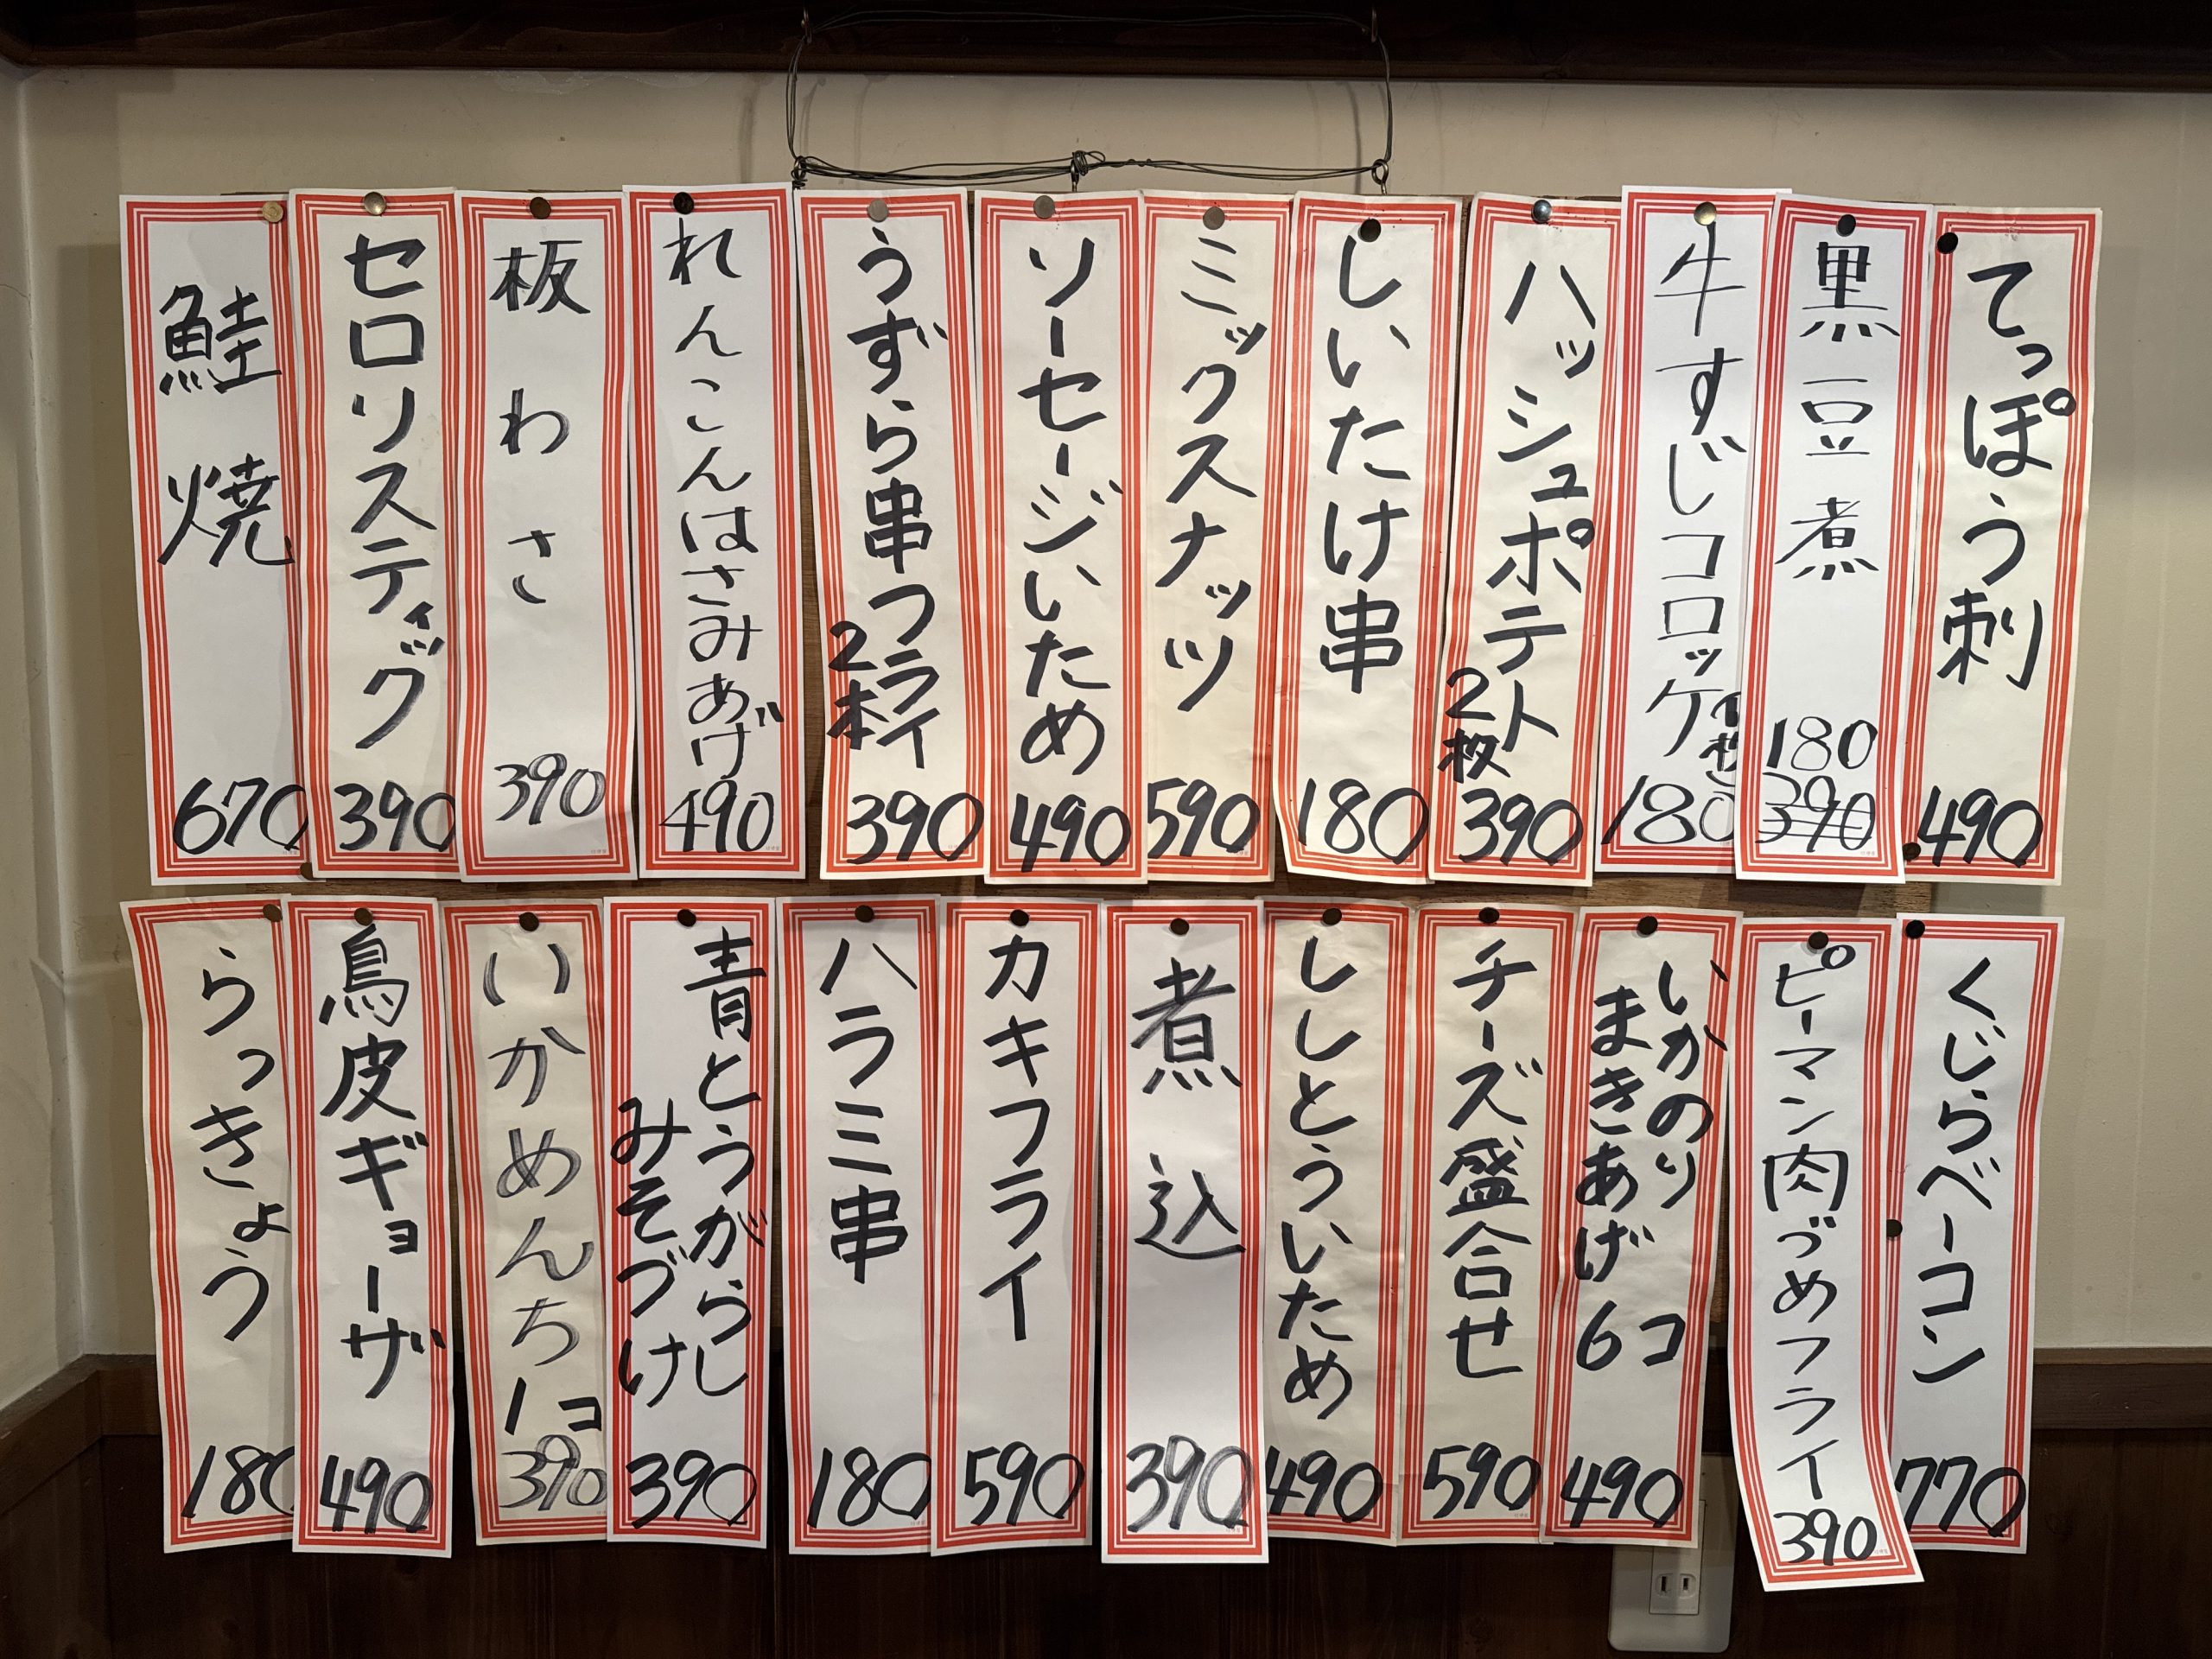 てっぽう刺
490
黒豆煮
180
390
牛すじコロッケ
1枚
180
ハッシュポテト
2枚
390
しいたけ串
180
ミックスナッツ
590
ソーセージいため
490
うずら串フライ
2本
390
れんこんはさみあげ
490
板わさ
390
セロリスティック
390
鮭焼
670
くじらベーコン
770
ピーマン肉づめフライ
390
いかのり
まきあげ 6コ
490
チーズ盛合せ
590
ししとういため
490
煮込
390
カキフライ
590
ハラミ串
180
青とうがらし
みそづけ
390
いかめんち
1コ
390
鳥皮ギョーザ
490
らっきょう
180